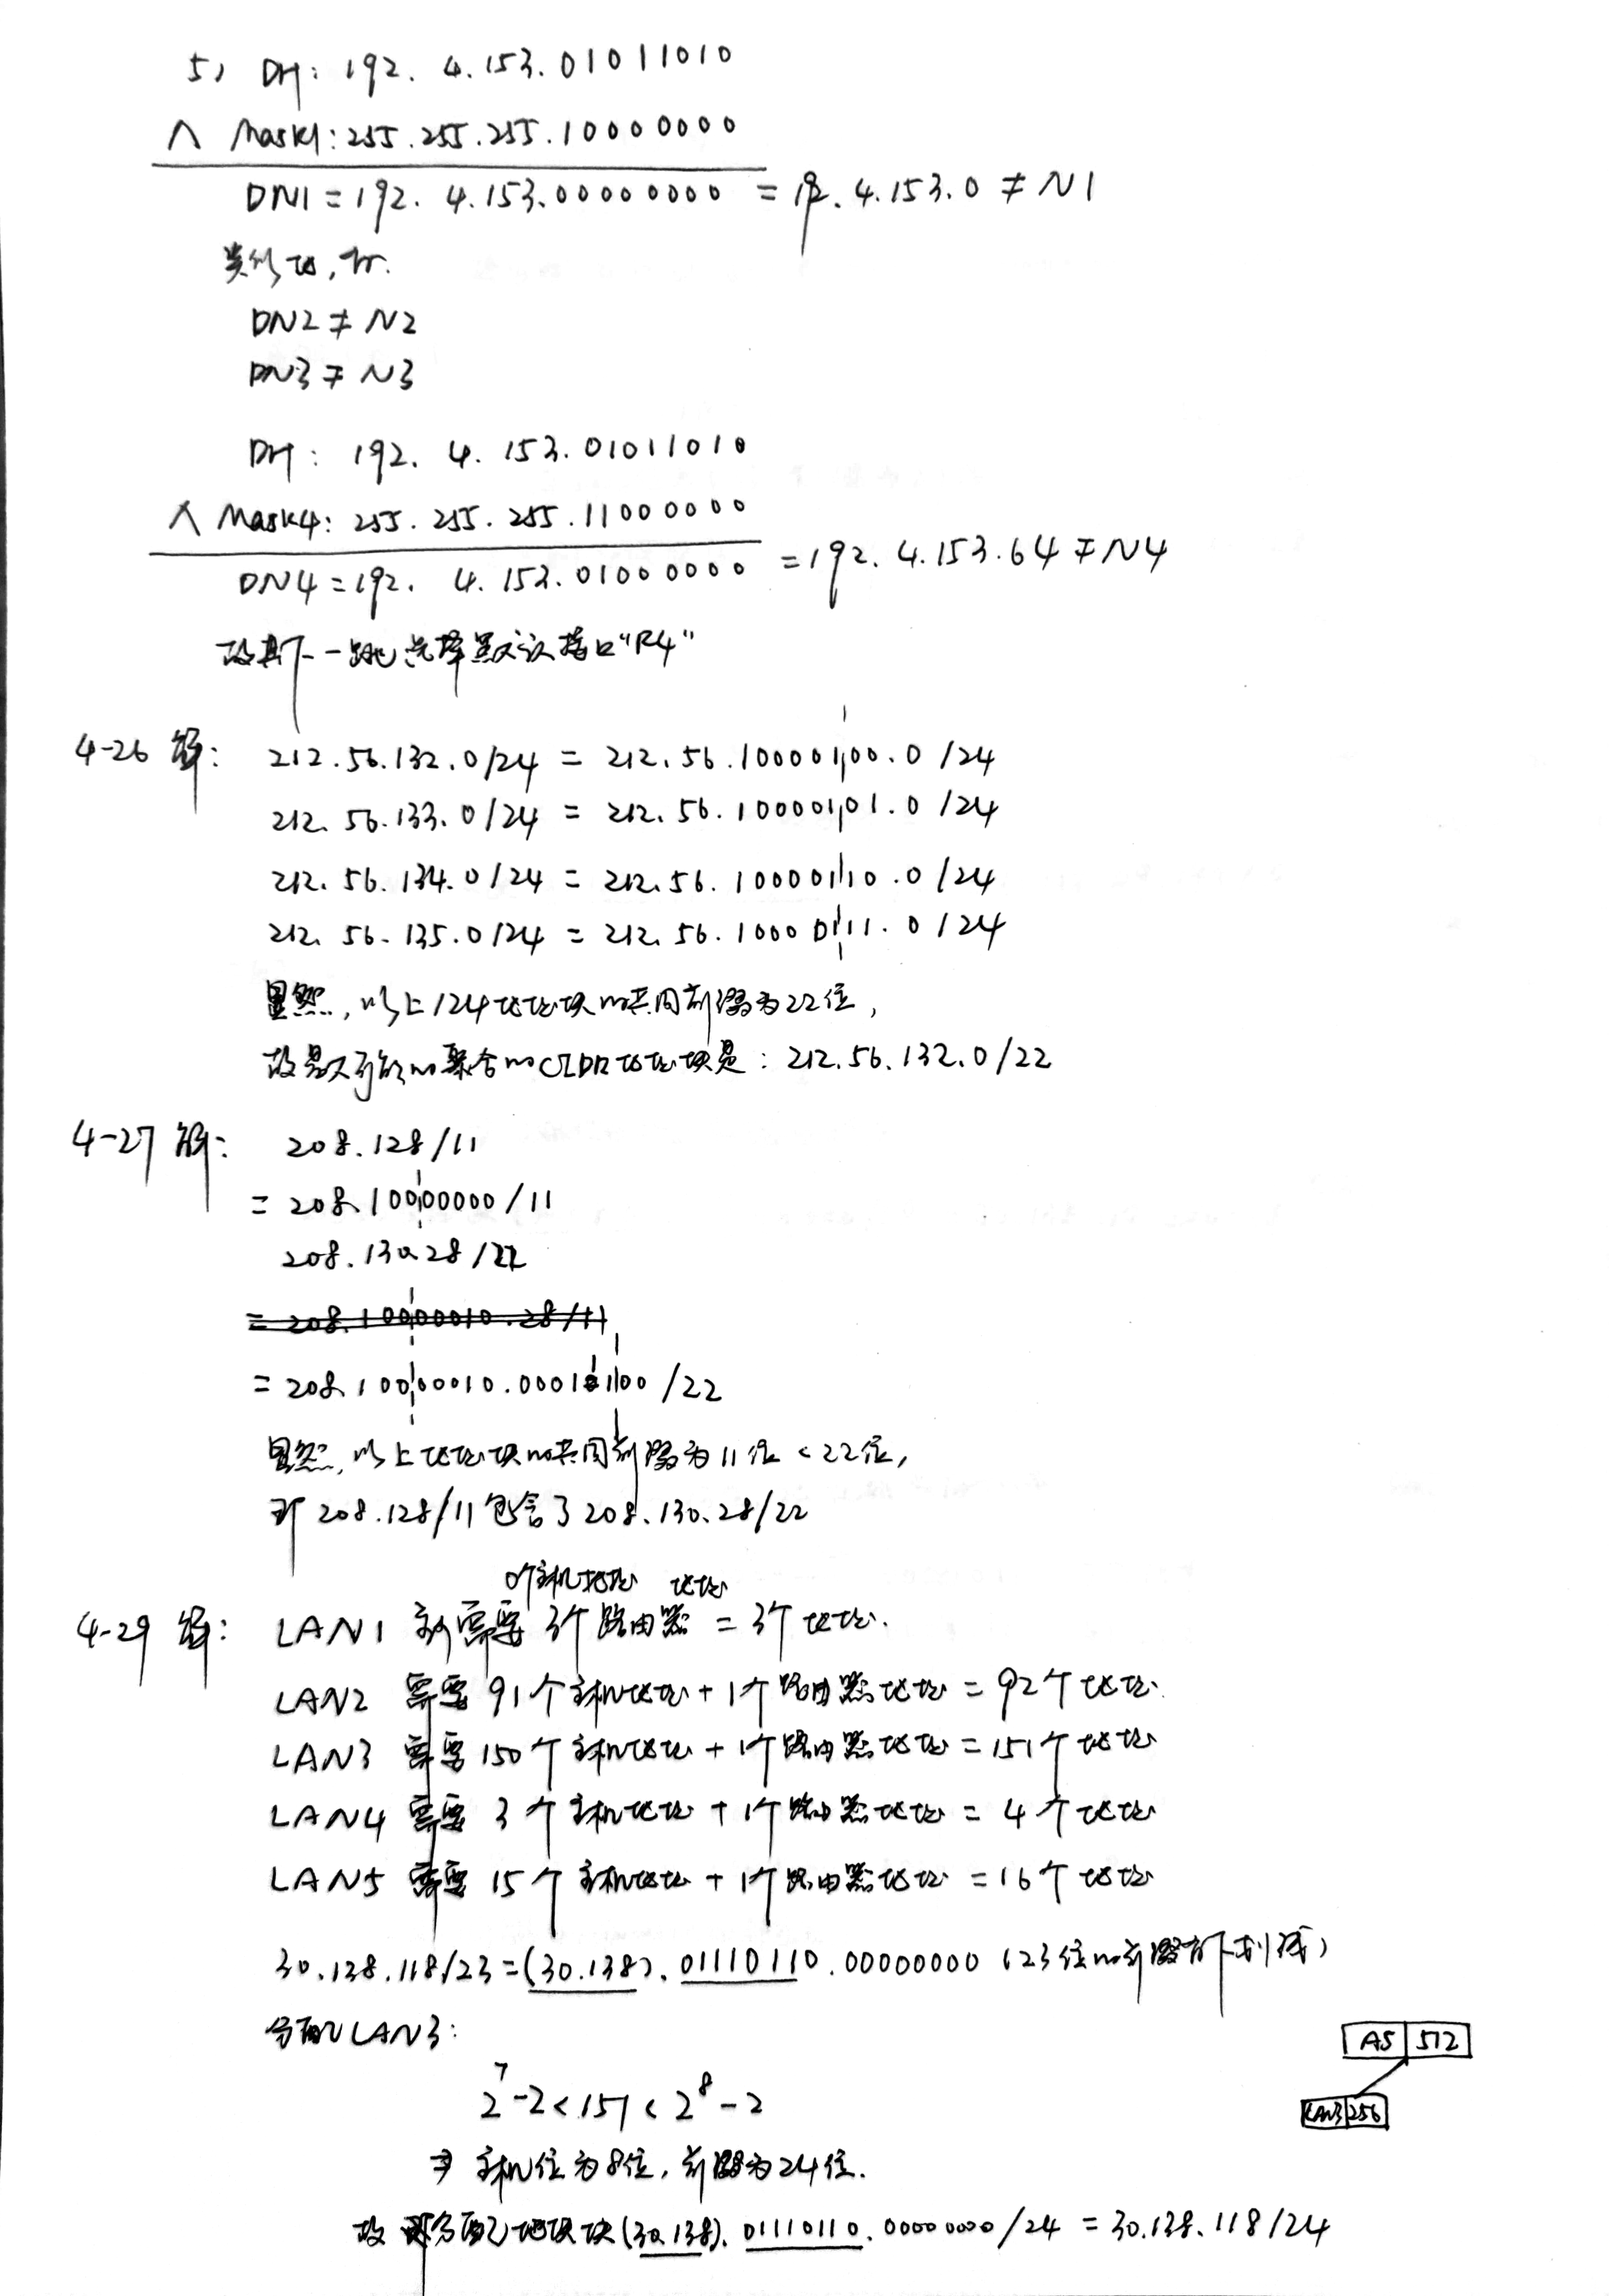 5) DH: 192. 4. 153. 01011010
∧ Mask1: 255. 255. 255. 10000000
DN1 = 192. 4. 153. 00000000 = 192. 4. 153. 0 ≠ N1
类似地,有.
DN2 ≠ N2
DN3 ≠ N3
DH: 192. 4. 153. 01011010
∧ Mask4: 255. 255. 255. 11000000
DN4 = 192. 4. 153. 01000000 = 192. 4. 153. 64 ≠ N4
故其下一跳选择默认接口"R4"
4-26 解: 212.56.132.0/24 = 212.56.10000100.0/24
212.56.133.0/24 = 212.56.10000101.0/24
212.56.134.0/24 = 212.56.10000110.0/24
212.56.135.0/24 = 212.56.10000111.0/24
显然, 以上/24地址块的共同前缀为22位,
故最大可能的聚合的CIDR地址块是: 212.56.132.0/22
4-27 解: 208.128/11
= 208.10000000/11
208.130.28/22
= 208.10000010.28/11
= 208.10000010.00011100/22
显然, 以上地址块的共同前缀为11位 < 22位,
即 208.128/11 包含了 208.130.28/22
0个主机地址 地址
4-29 解: LAN1 需要 3个路由器 = 3个地址.
LAN2 需要 91个主机地址 + 1个路由器地址 = 92个地址.
LAN3 需要 150个主机地址 + 1个路由器地址 = 151个地址
LAN4 需要 3个主机地址 + 1个路由器地址 = 4个地址
LAN5 需要 15个主机地址 + 1个路由器地址 = 16个地址
30.138.118/23 = (30.138). 01110110.00000000 (23位的前缀有下划线)
分配LAN3:
AS 512
2⁷-2 < 151 < 2⁸-2
LAN3 256
⇒ 主机位为8位, 前缀为24位.
故 分配地址块 (30.138). 01110110. 00000000/24 = 30.138.118/24